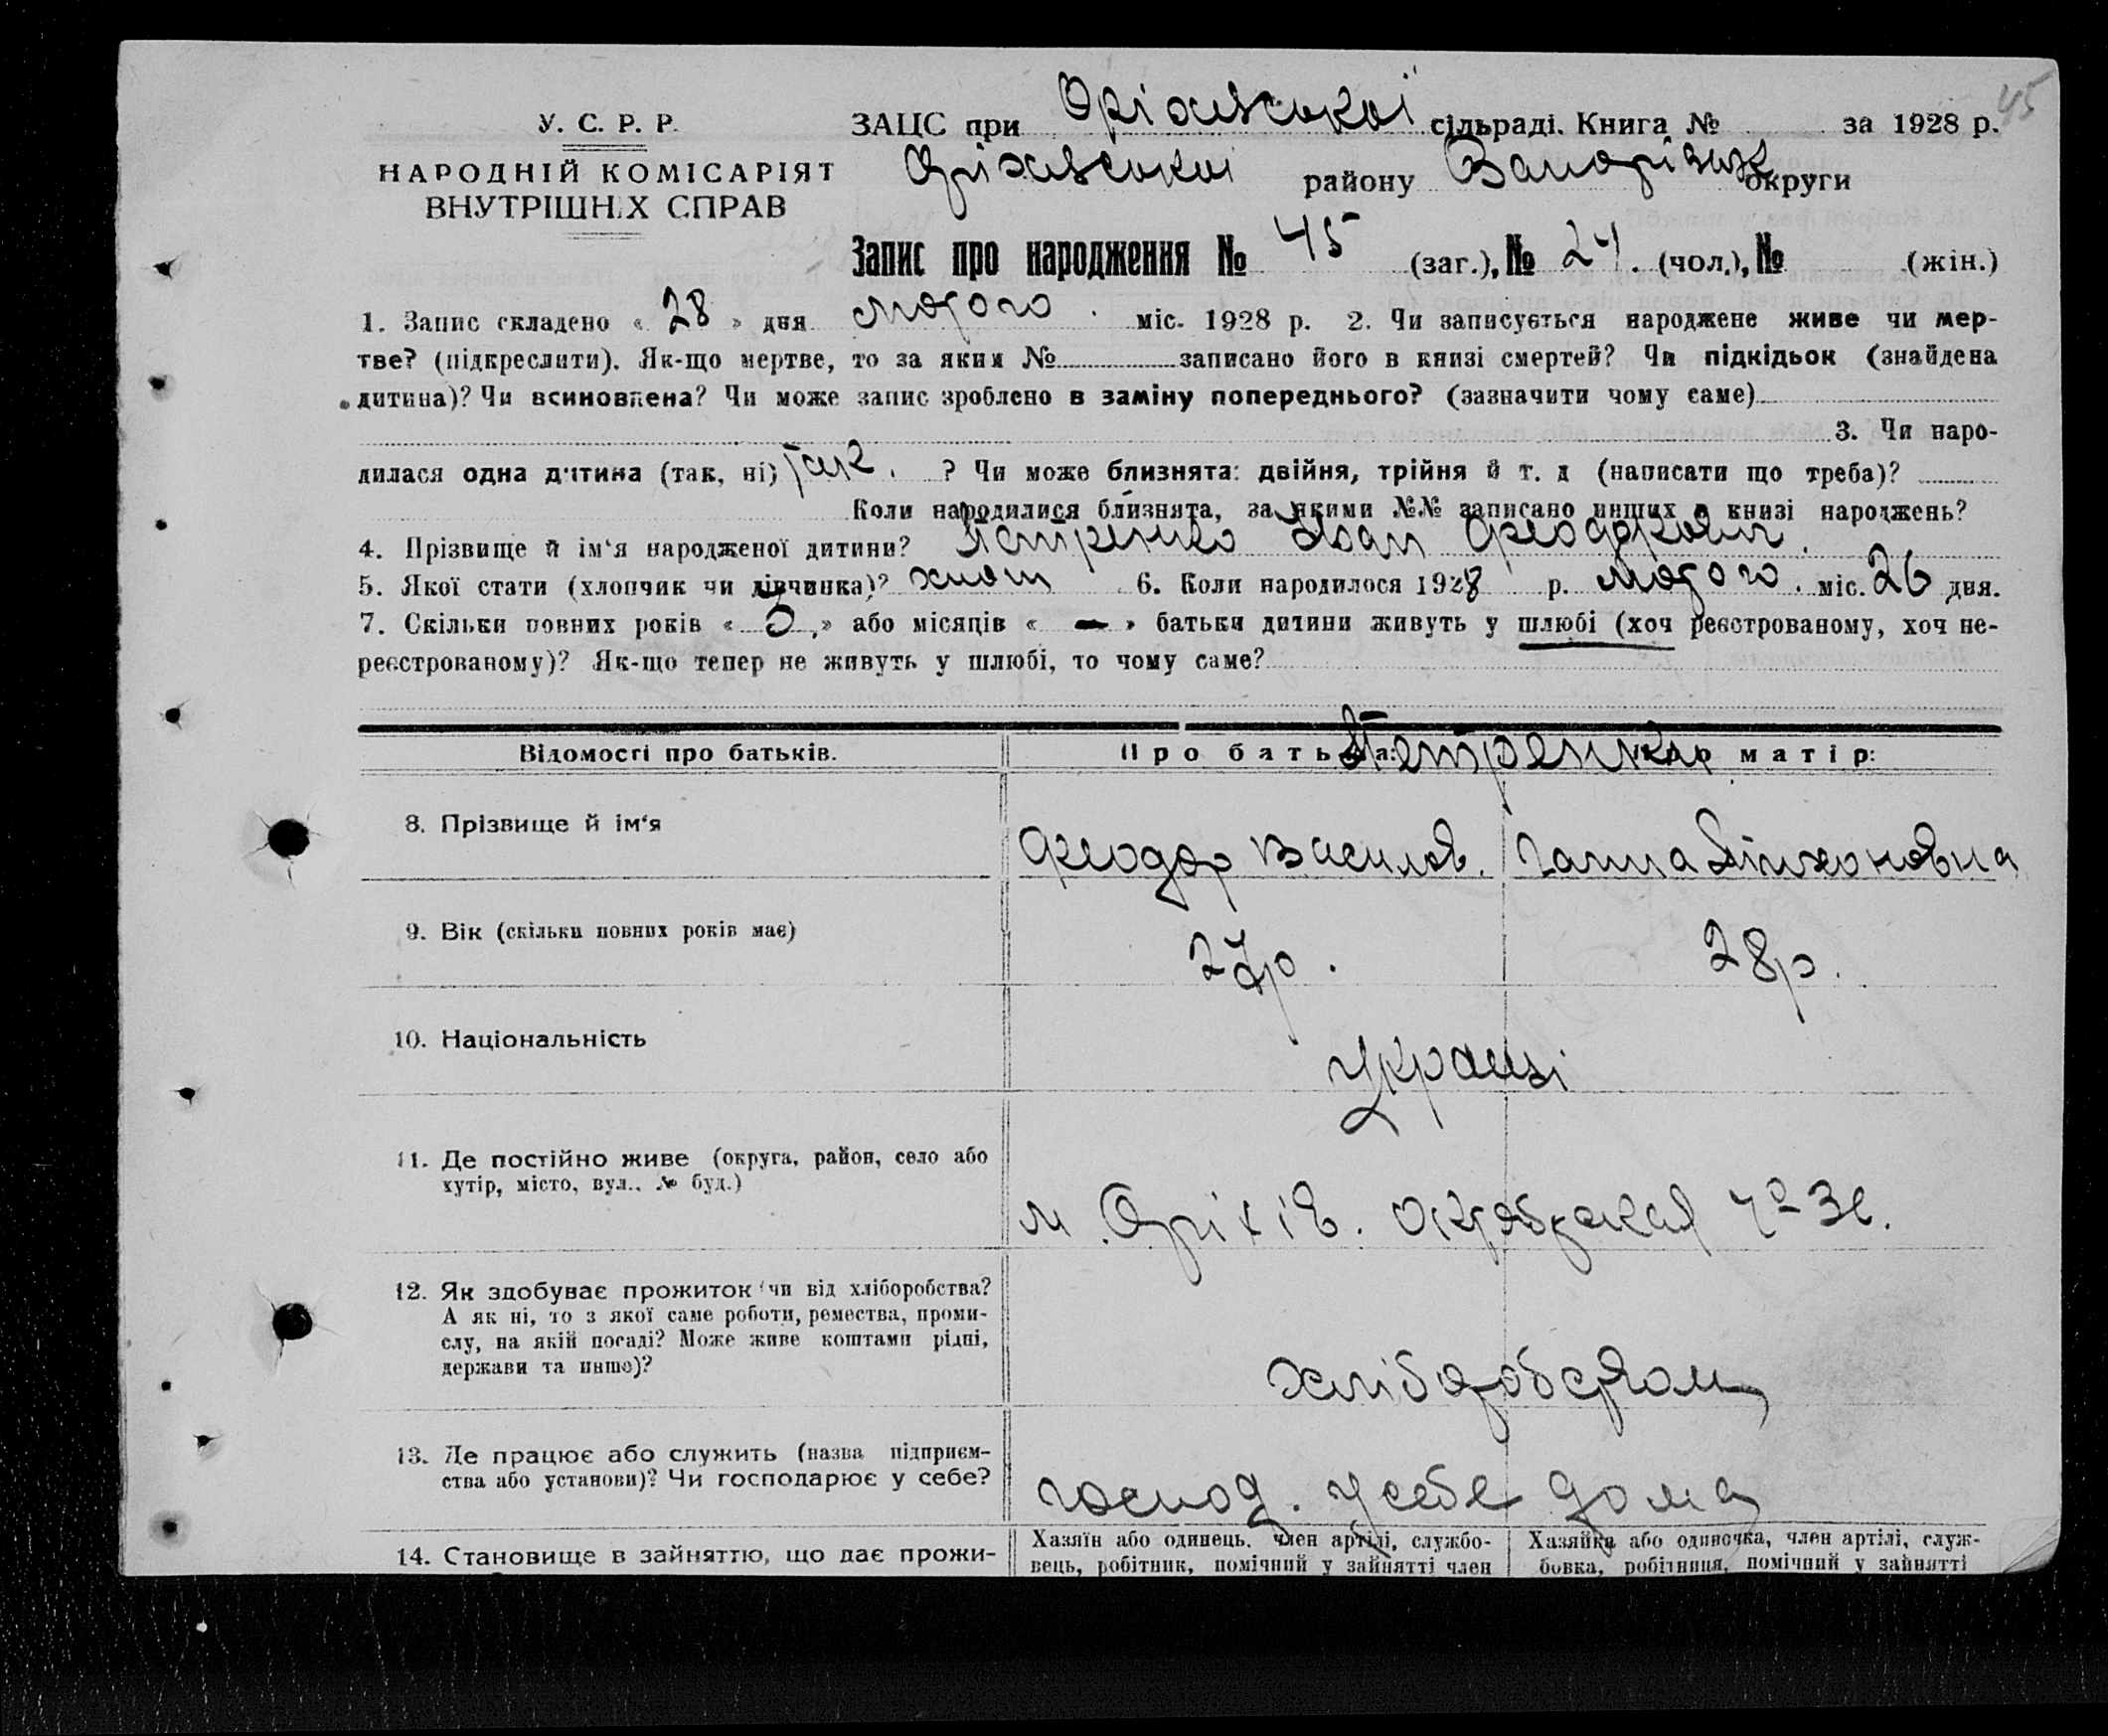 45
У. С. Р. Р.
ЗАЦС при Оріхівської сільраді. Книга № за 1928 р.
НАРОДНІЙ КОМІСАРІЯТ
ВНУТРІШНІХ СПРАВ
Оріхівської району Запорізьк округи
Запис про народження № 45 (заг.), № 24. (чол.), № (жін.)
1. Запис складено « 28 » дня лютого. міс. 1928 р. 2. Чи записується народжене живе чи мер-
тве? (підкреслити). Як-що мертве, то за яким № записано його в книзі смертей? Чи підкідьок (знайдена
дитина)? Чи всиновлена? Чи може запис зроблено в заміну попереднього? (зазначити чому саме)
3. Чи наро-
дилася одна дитина (так, ні) так. ? Чи може близнята: двійня, трійня й т. д (написати що треба)?
Коли народилися близнята, за якими №№ записано инших в книзі народжень?
4. Прізвище й ім‘я народженої дитини? Петренко Іван Феодоров.
5. Якої стати (хлопчик чи дівчинка)? хлоп 6. Коли народилося 1928 р. лютого. міс. 26 дня.
7. Скільки повних років « 3 » або місяців « — » батьки дитини живуть у шлюбі (хоч реєстрованому, хоч не-
реєстрованому)? Як-що тепер не живуть у шлюбі, то чому саме?
Відомості про батьків. Про батька: Про матір:
Петренки
8. Прізвище й ім‘я Феодор Василів. Ганна Тихоновна
9. Вік (скільки повних років має) 27р. 28р.
10. Національність Українці
11. Де постійно живе (округа, район, село або
хутір, місто, вул., № буд.)
м. Оріхів.
12. Як здобуває прожиток (чи від хліборобства?
А як ні, то з якої саме роботи, ремества, проми-
слу, на якій посаді? Може живе коштами рідні,
держави та инше)?
хліборобством
13. Де працює або служить (назва підприєм-
ства або установи)? Чи господарює у себе?
господ. у себе дома
14. Становище в зайняттю, що дає прожи-
Хазяїн або одинець, член артілі, службо-
вець, робітник, помічний у зайнятті член
Хазяйка або одиночка, член артілі, служ-
бовка, робітниця, помічний у зайнятті